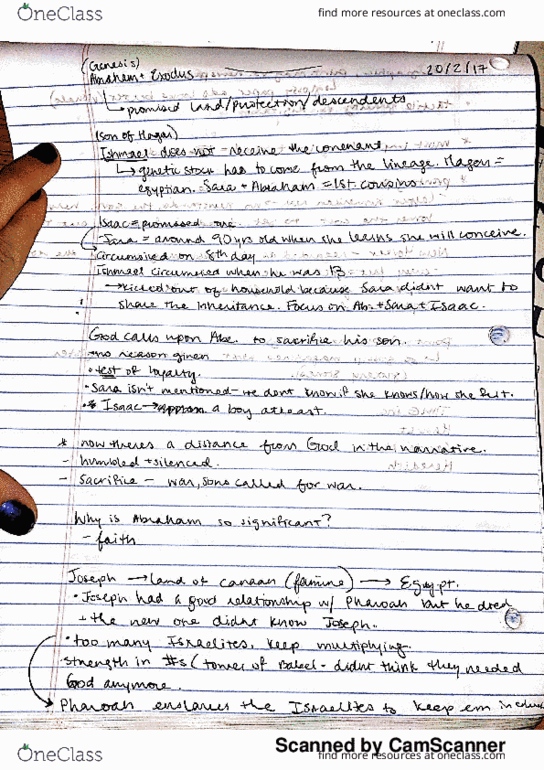 OneClass
find more resources at oneclass.com
(Genesis)
Abraham + Exodus
20/2/17
↳ promised land/protection/descendents
(son of Hagar)
Ishmael does not receive the covenant
↳ genetic stock has to come from the lineage. Hagar =
egyptian. Sara + Abraham = 1st. cousins
Isaac = promised one
- Sara = around 90 yrs old when she learns she will conceive.
Circumcised on 8th day
Ishmael circumcised when he was 13
→ Kicked out of household because Sara didnt want to
share the inheritance. Focus on Ab. + Sara + Isaac.
God calls upon Abe. to sacrifice his son.
→ no reason given
• test of loyalty.
• Sara isn't mentioned - we dont know if she knows/how she felt.
• Isaac → a boy atleast.
* now theres a distance from God in the narrative.
- humbled + silenced.
- sacrifice - war, sons called for war.
Why is Abraham so significant?
- faith
Joseph → land of canaan (famine) → Egypt.
• Joseph had a good relationship w/ Pharoah but he died
+ the new one didnt know Joseph.
• too many Israelites, keep multiplying.
strength in #s (tower of Babel - didnt think they needed
God anymore.
→ Pharoah enslaves the Israelites to keep em in
Scanned by CamScanner
OneClass
find more resources at oneclass.com